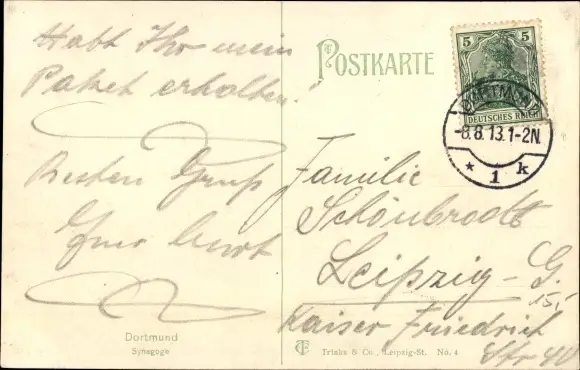 Habt Ihr mein
Paket erhalten.
Besten Gruß
Euer Kurt
Dortmund
Synagoge
POSTKARTE
5 5
DEUTSCHES REICH
DORTMUND
-8.8.13.1-2N.
* 1 k
Familie
Schönbrodt
Leipzig-G.
15,-
Kaiser Friedrich
Str 40
Trinks & Co., Leipzig-St. No. 4